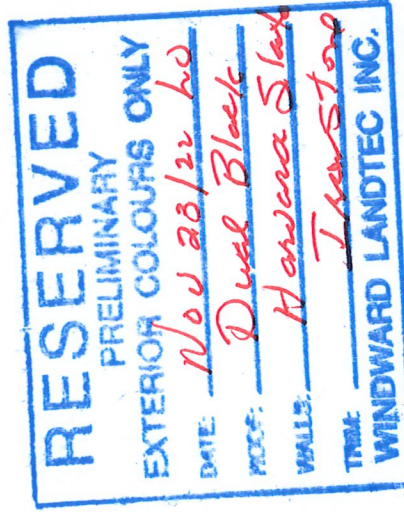 RESERVED
PRELIMINARY
EXTERIOR COLOURS ONLY
DATE: Nov 23/22
ROOF: Dual Black
WALLS: Harvard Slate
TRIM: Iron Stone
WINDWARD LANDTEC INC.